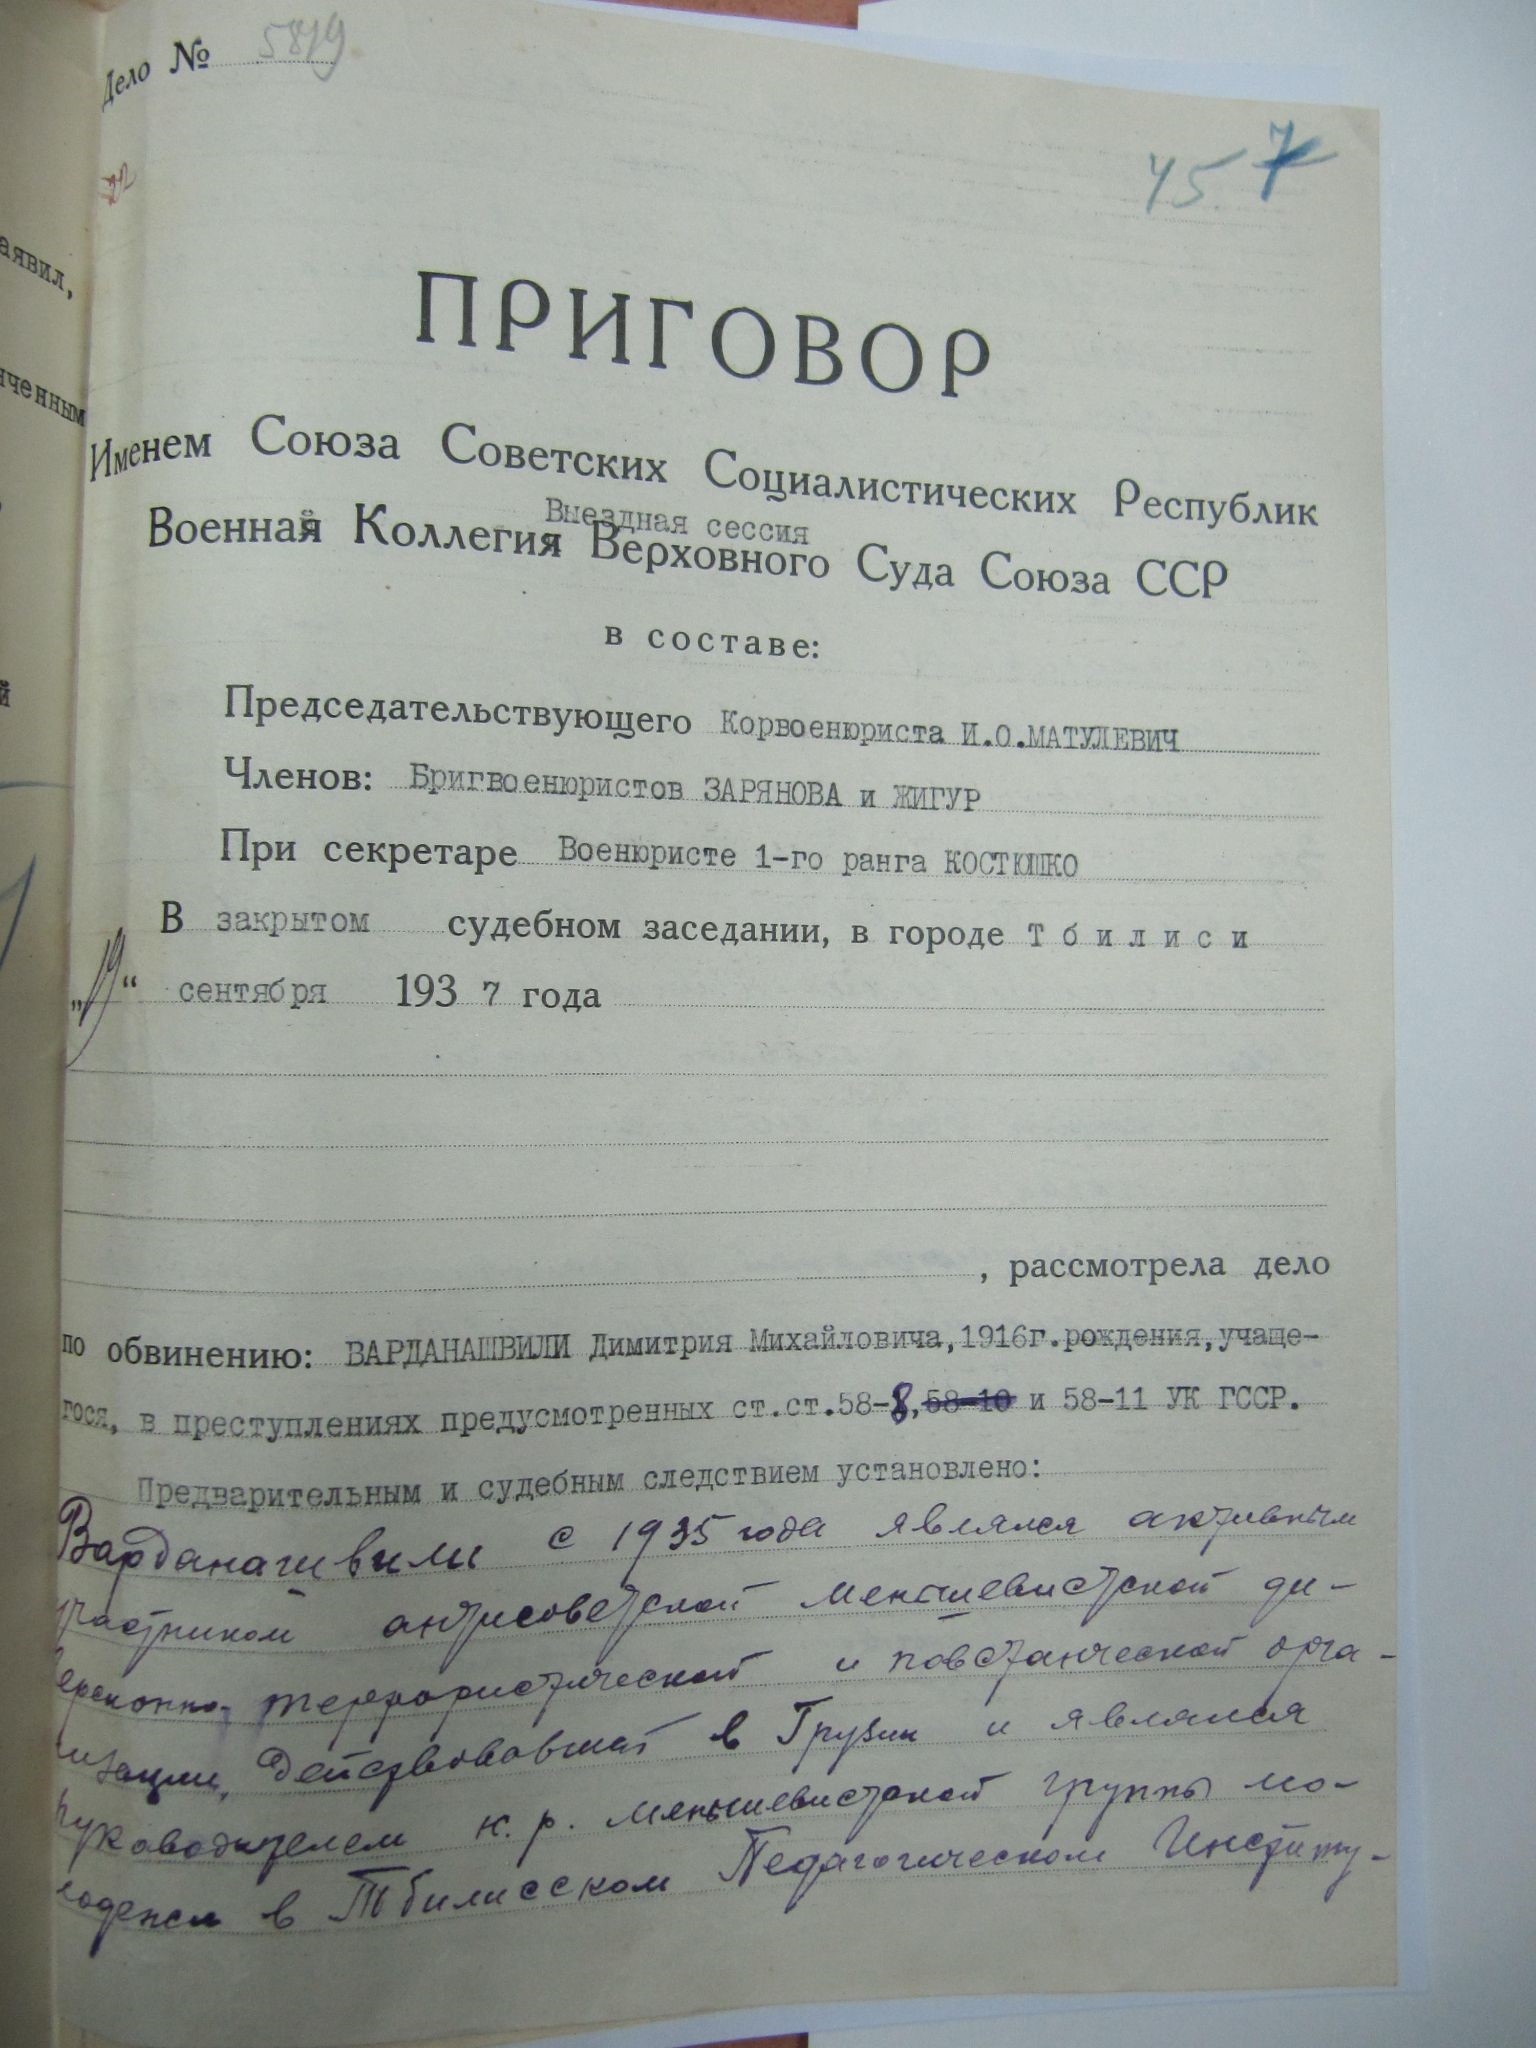 Дело № 5819
45. 7
22
аявил,
ПРИГОВОР
нченным
Именем Союза Советских Социалистических Республик
Выездная сессия
Военная Коллегия Верховного Суда Союза ССР
в составе:
й
Председательствующего Корвоенюриста И.О.МАТУЛЕВИЧ
Членов: Бригвоенюристов ЗАРЯНОВА и ЖИГУР
При секретаре Военюристе 1-го ранга КОСТЮШКО
В закрытом судебном заседании, в городе Тбилиси
„19“ сентября 1937 года
, рассмотрела дело
по обвинению: ВАРДАНАШВИЛИ Димитрия Михайловича,1916г.рождения,учаще-
гося, в преступлениях предусмотренных ст.ст.58-8,58-10 и 58-11 УК ГССР.
Предварительным и судебным следствием установлено:
Варданашвили с 1935 года являлся активным
участником антисоветской меньшевистской ди-
версионно-террористической и повстанческой орга-
низации, действовавшей в Грузии и являлся
руководителем к.р. меньшевистской группы мо-
лодежи в Тбилисском Педагогическом Институ-